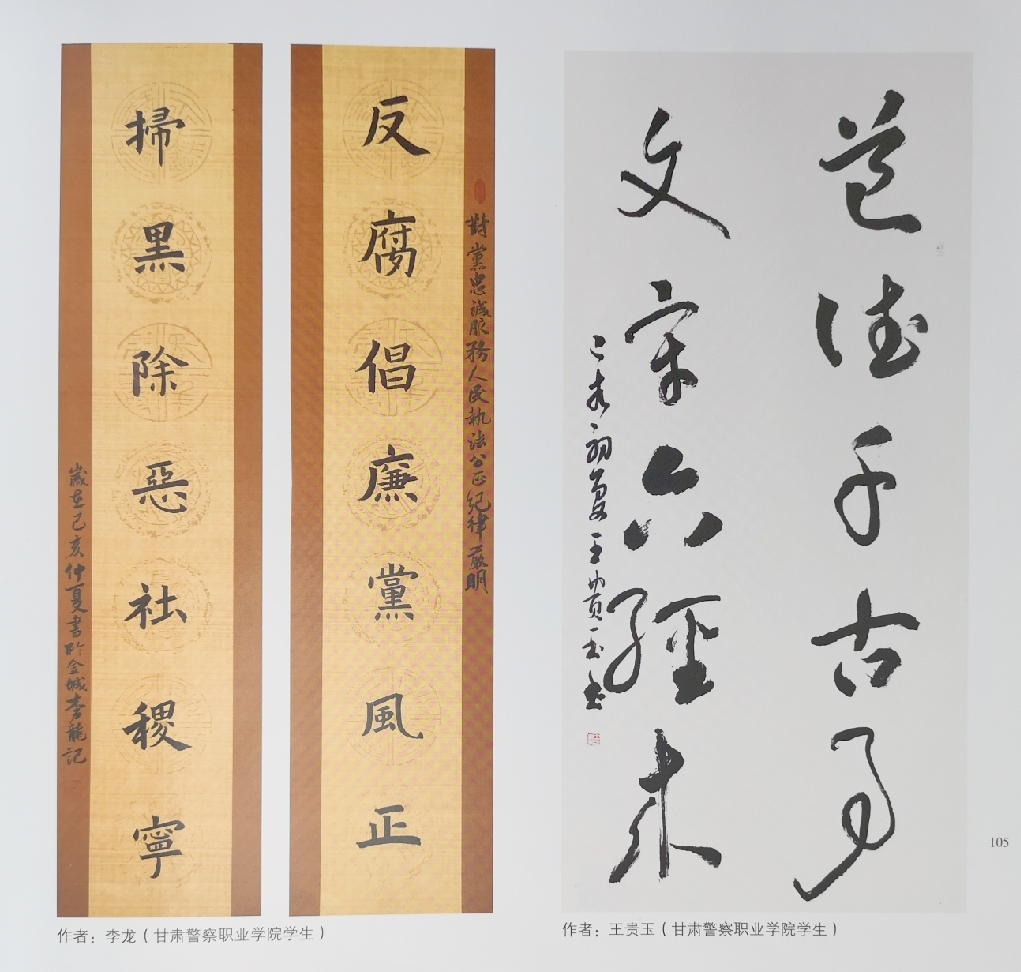 對黨忠誠服務人民執法公正紀律嚴明
反腐倡廉黨風正
掃黑除惡社稷寧
歲在己亥仲夏書於金城李龍記
作者：李龙（甘肃警察职业学院学生）
道德千古事
文章六經來
己亥初夏王贵玉书
作者：王贵玉（甘肃警察职业学院学生）
105